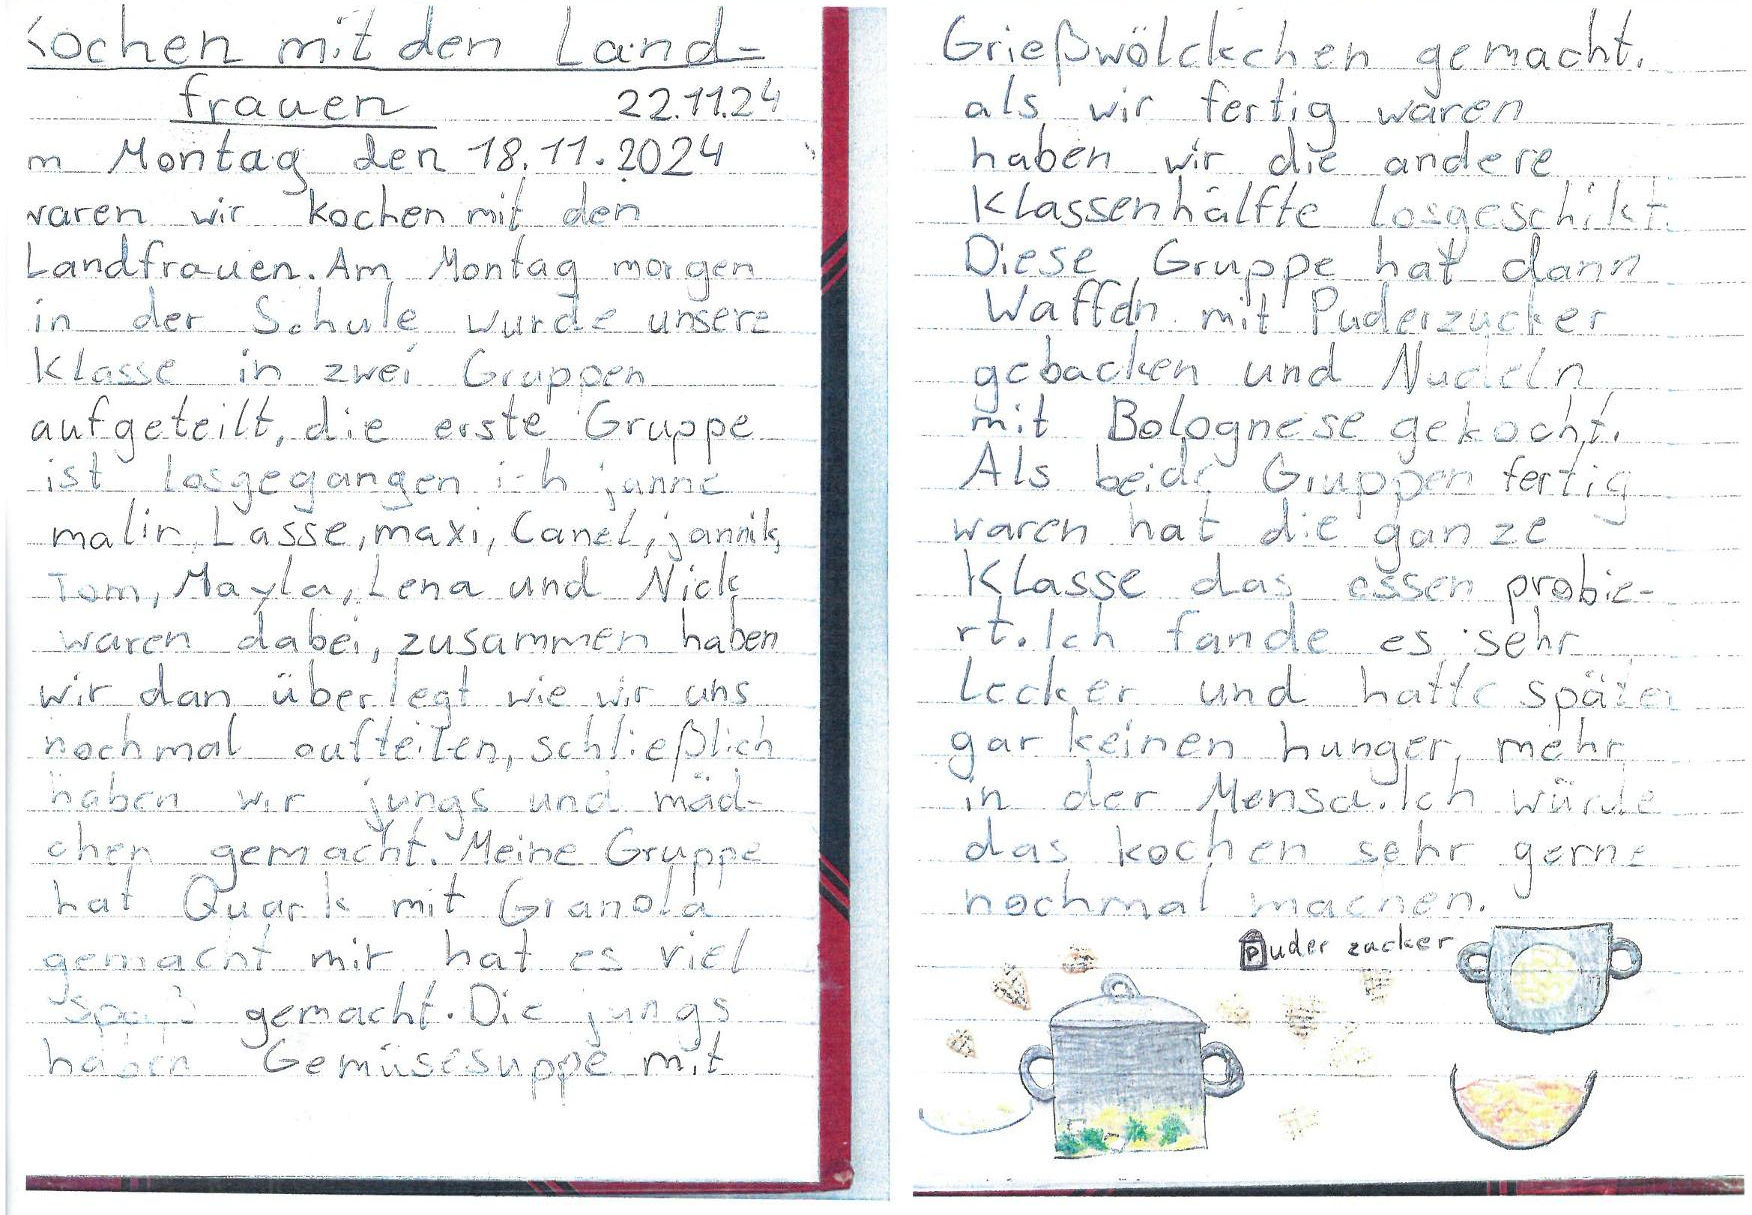 Kochen mit den Land-
frauen 22.11.24
m Montag den 18.11.2024
waren wir kochen mit den
Landfrauen. Am Montag morgen
in der Schule wurde unsere
Klasse in zwei Gruppen
aufgeteilt, die erste Gruppe
ist losgegangen ich janne
malin, Lasse, maxi, Canel, jannik,
Tom, Mayla, Lena und Nick
waren dabei, zusammen haben
wir dan überlegt wie wir uns
nochmal aufteilen, schließlich
haben wir jungs und mäd-
chen gemacht. Meine Gruppe
hat Quark mit Granola
gemacht mir hat es viel
Spaß gemacht. Die jungs
haben Gemüsesuppe mit
Grießwölckchen gemacht.
als wir fertig waren
haben wir die andere
Klassenhälfte losgeschikt.
Diese Gruppe hat dann
Waffeln mit Puderzucker
gebacken und Nudeln
mit Bolognese gekocht.
Als beide Gruppen fertig
waren hat die ganze
Klasse das essen probie-
rt. Ich fande es sehr
Lecker und hatte später
gar keinen hunger, mehr
in der Mensa. Ich würde
das kochen sehr gerne
nochmal machen.
Puder zucker